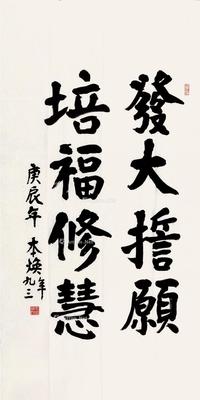 發大誓願
培福修慧
庚辰年 本煥
年九三